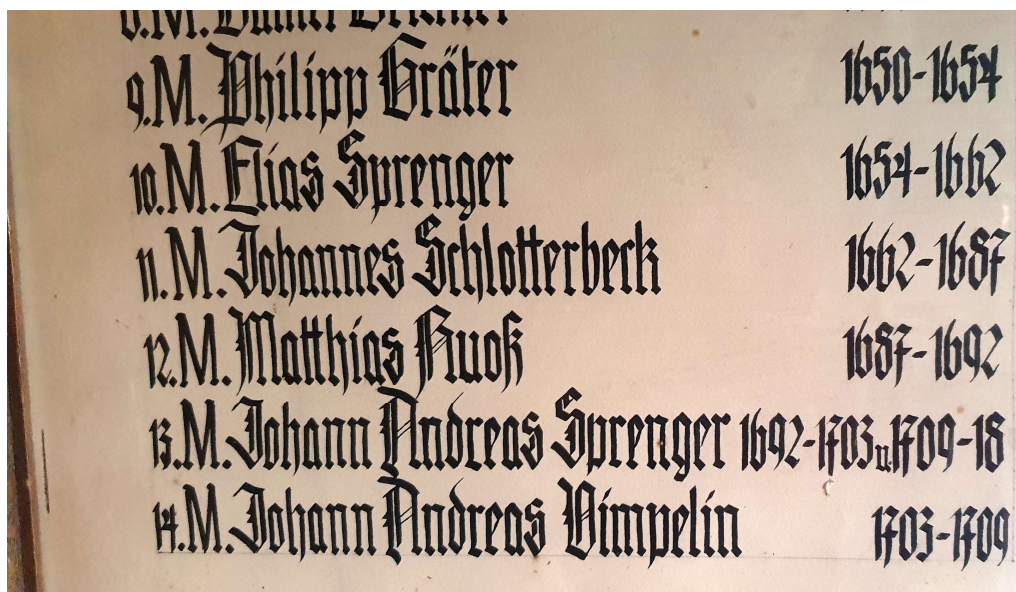 9. M. Philipp Gräter 1650-1654
10. M. Elias Sprenger 1654-1662
11. M. Johannes Schlotterbeck 1662-1687
12. M. Matthias Ruoß 1687-1692
13. M. Johann Andreas Sprenger 1692-1703 u. 1709-18
14. M. Johann Andreas Vimpelin 1703-1709